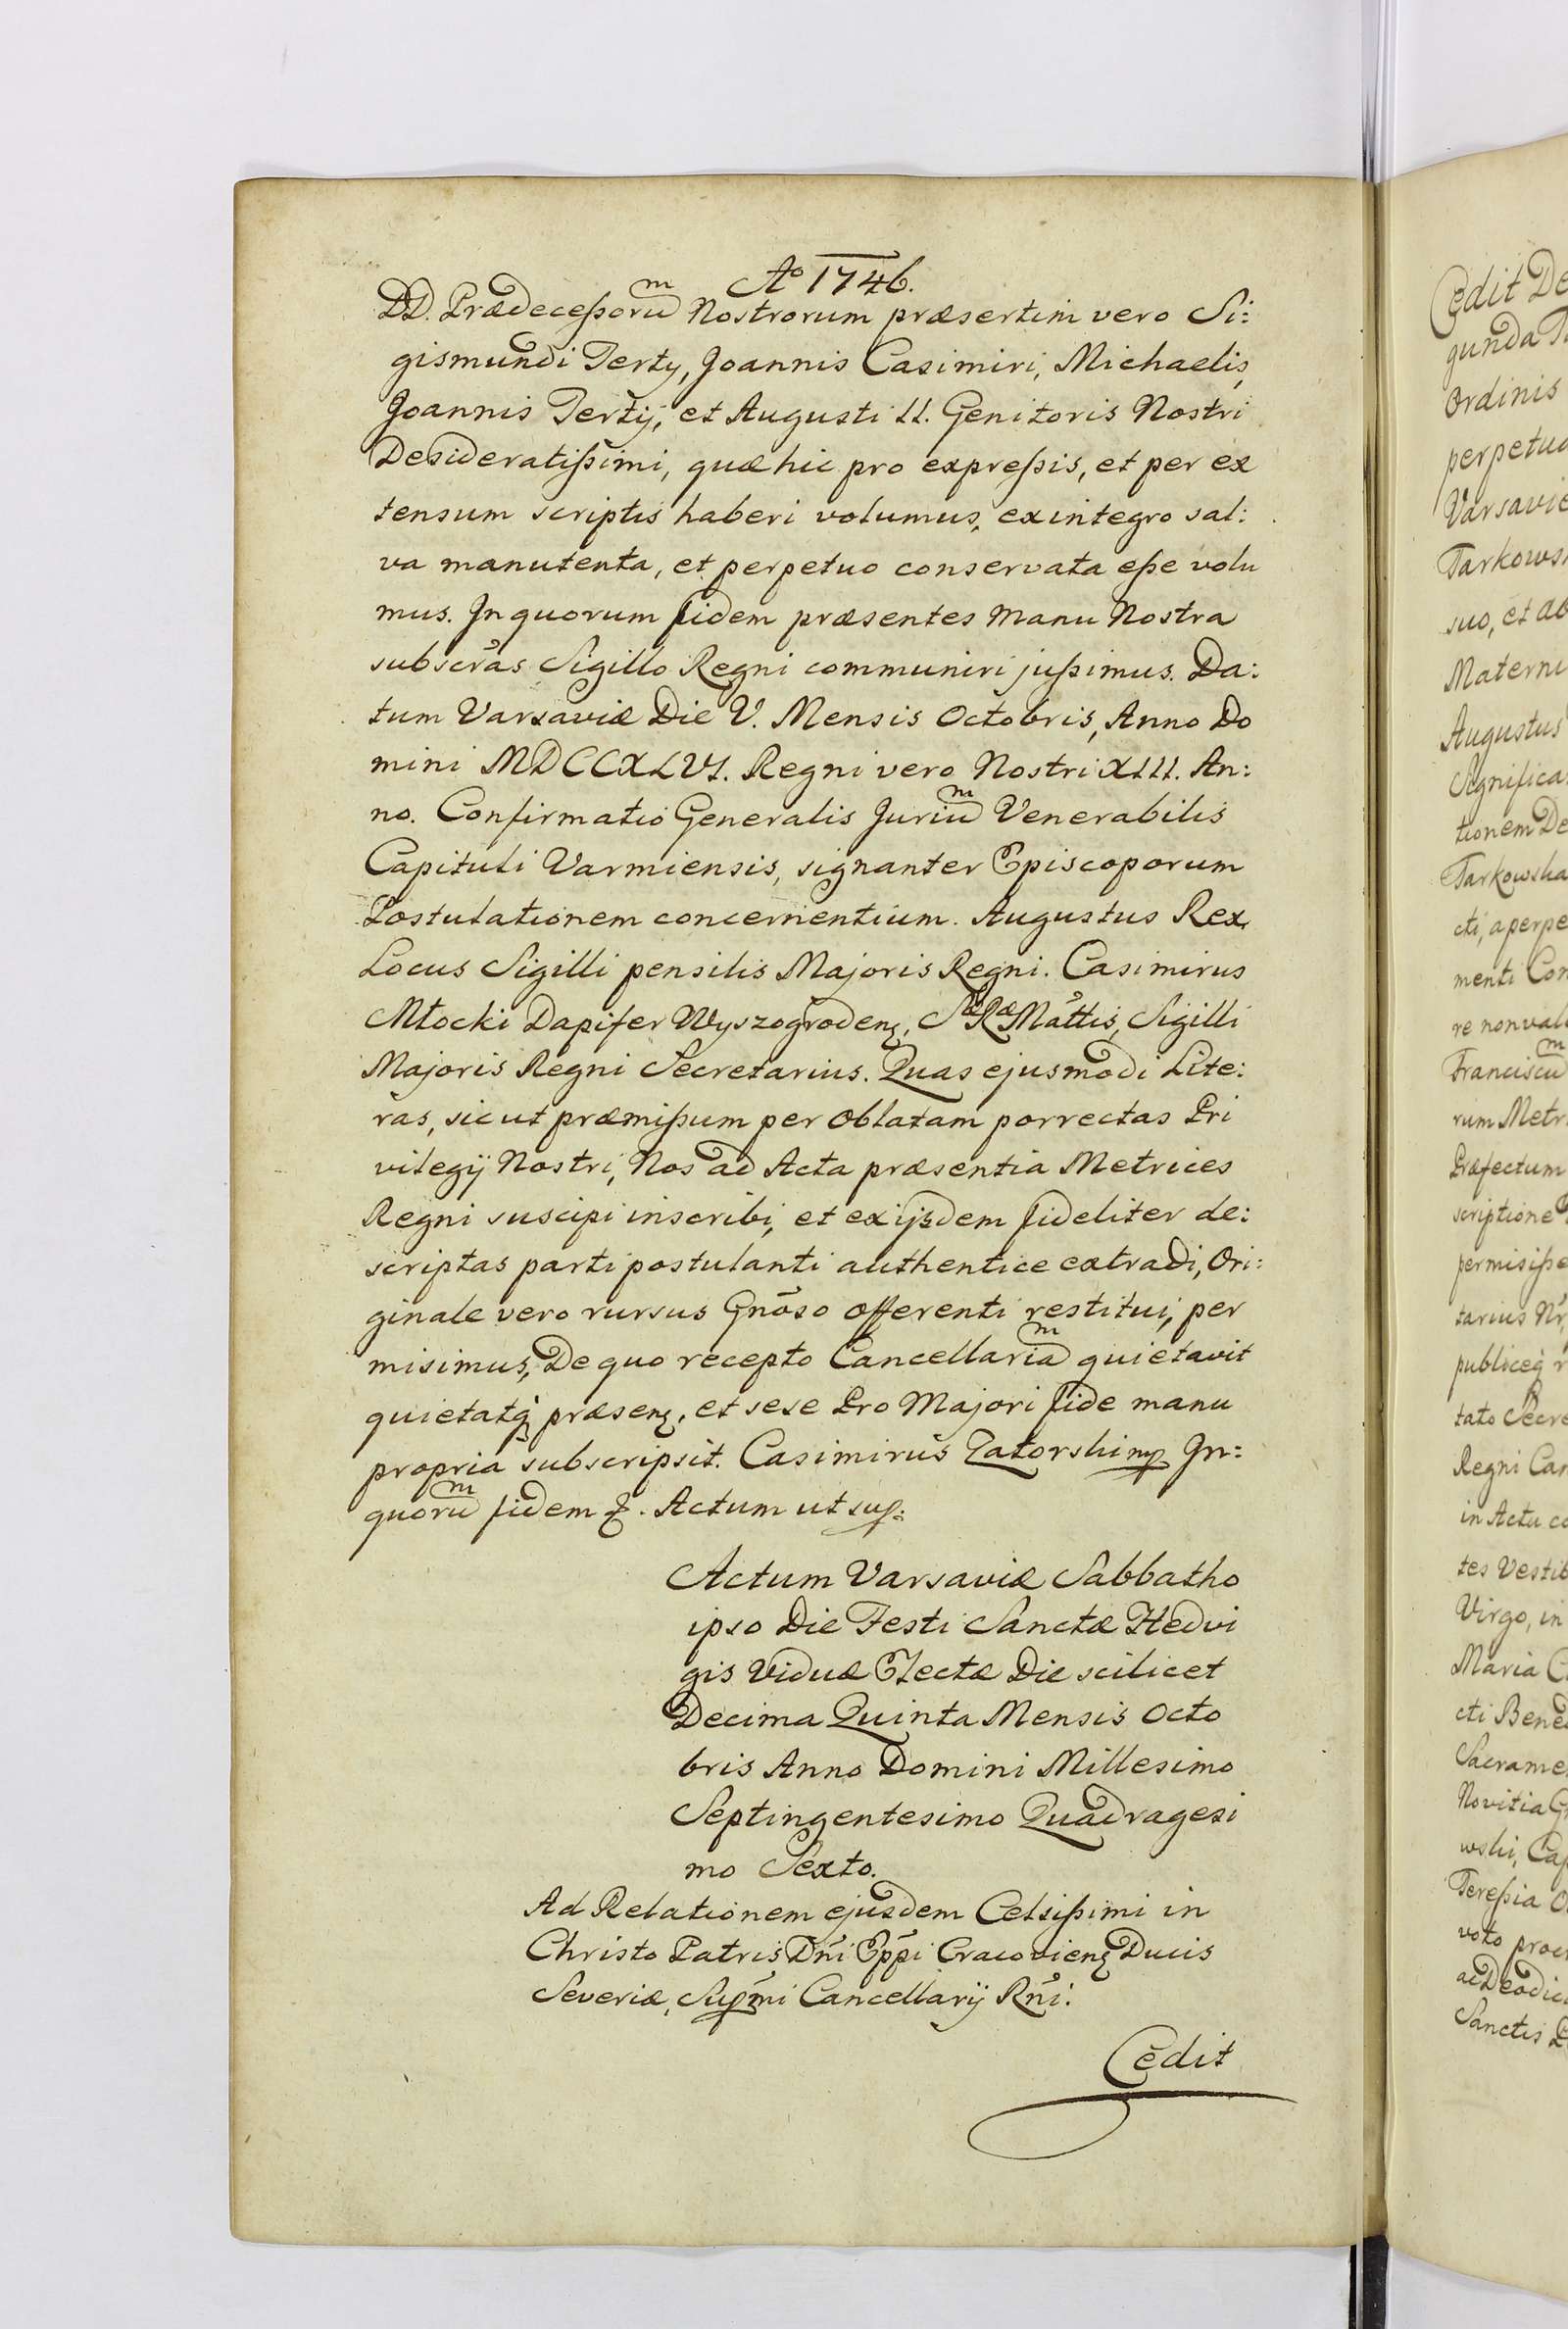 Aº 1746.
DD. Prædeceßorum Nostrorum præsertim vero Si:
gismundi Tertÿ, Joannis Casimiri, Michaelis,
Joannis Tertij, et Augusti II. Genitoris Nostri
Desideratißimi, quæ hic pro expreßis, et per ex
tensum scriptis haberi volumus, ex integro sal:
va manutenta, et perpetuo conservata eße volu
mus. In quorum fidem præsentes Manu Nostra
subscr̃as Sigillo Regni communiri jußimus. Da:
tum Varsaviæ Die V. Mensis Octobris, Anno Do
mini MDCCXLVI. Regni vero Nostri XIII. An:
no. Confirmatio Generalis Jurium Venerabilis
Capituli Varmiensis, signanter Episcoporum
Postulationem concernentium. Augustus Rex,
Locus Sigilli pensilis Majoris Regni. Casimirus
Młocki Dapifer Wyszogrodenꝫ, Sæ Ræ Mãttis, Sigilli
Majoris Regni Secretarius. Quas ejusmodi Lite:
ras, sicut præmißum per Oblatam porrectas Pri
vilegij Nostri, Nos ad Acta præsentia Metrices
Regni suscipi inscribi, et ex ijsdem fideliter de:
scriptas parti postulanti authentice extradi, Ori:
ginale vero rursus Gnõso Offerenti restitui, per
misimus, De quo recepto Cancellariam quietavit
quietatqꝫ præsenꝫ, et sese Pro Majori fide manu
propria subscripsit. Casimirus Zatorski mp In:
quorum fidem &. Actum ut sup:
Actum Varsaviæ Sabbatho
ipso Die Festi Sanctæ Hedvi
gis Viduæ Electæ Die scilicet
Decima Quinta Mensis Octo
bris Anno Domini Millesimo
Septingentesimo Quadragesi
mo Sexto.
Ad Relationem ejusdem Celsißimi in
Christo Patris Dñi Eppĩ Cracovienꝫ Ducis
Severiæ, Supmĩ Cancellarij Rñi.
Cedit
Cedit De
gunda
Ordinis
perpetuo
Varsavie
Tarkows
suo, et ab
Materni
Augustus
Significa
tionem De
Tarkowska
cti, a perpe
menti Con
re non val
Franciscum
rum Metr
Præfectum
scriptione
permisiße
tarius Nr̃
publiceqꝫ
tato Secre
Regni Can
in Actu co
tes Vestib
Virgo, in
Maria C
cti Bened
Sacrame
Novitia G
wski, Cap
Tereßia O
voto pro
ac Deo dic
Sanctis P